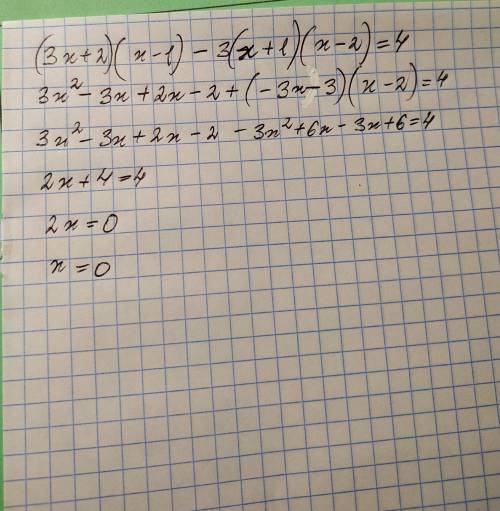 (3x+2)(x-1) - 3(x+1)(x-2) = 4
3x² - 3x + 2x - 2 + (-3x-3)(x-2) = 4
3x² - 3x + 2x - 2 - 3x² + 6x - 3x + 6 = 4
2x + 4 = 4
2x = 0
x = 0